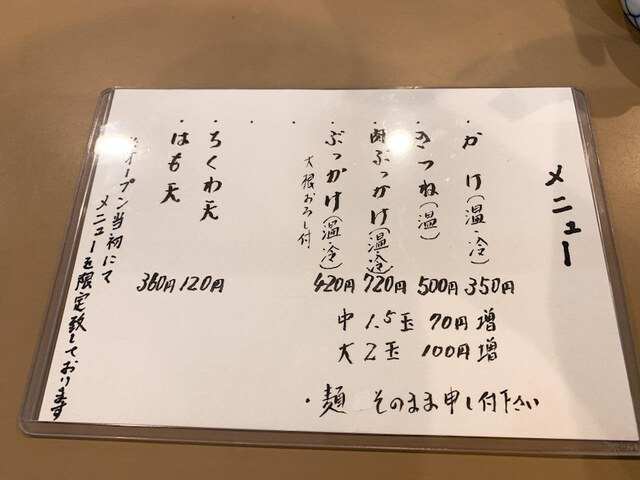 メニュー
・かけ(温・冷) 350円
・きつね(温) 500円
・肉ぶっかけ(温・冷) 720円
・ぶっかけ(温・冷) 420円
大根おろし付
中 1.5玉 70円増
大 2玉 100円増
・麺 そのまま申し付下さい
・
・
・ちくわ天 120円
・はも天 360円
※オープン当初にて
メニューを限定致しております